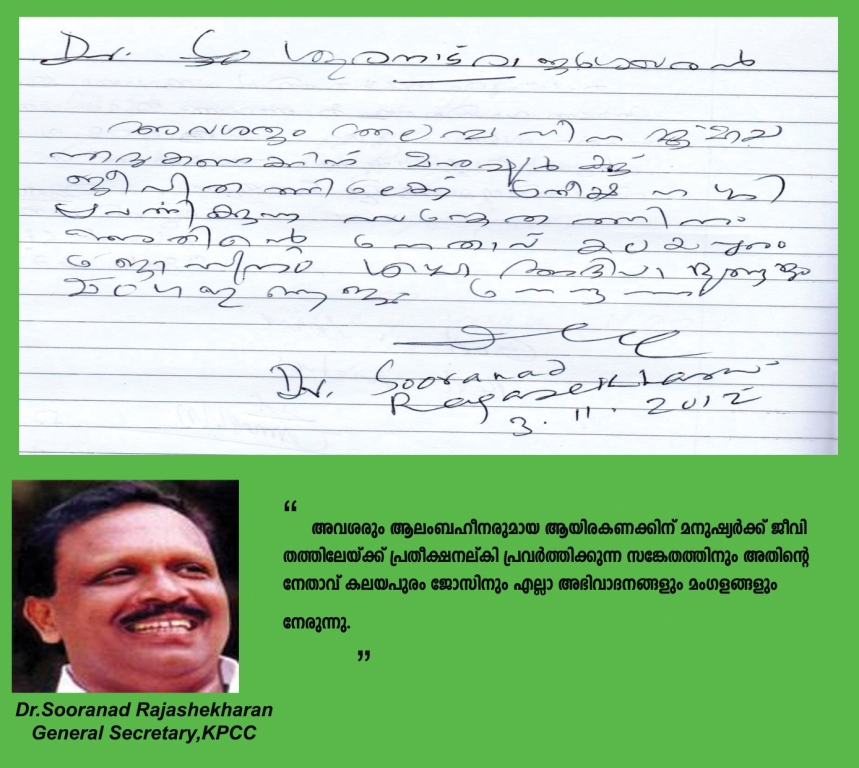 Dr. ശൂരനാട് രാജശേഖരൻ
അവശരും
മനുഷ്യർക്ക്
ജീവിതത്തിലേക്ക് പ്രതീക്ഷ നല്കി
പ്രവർത്തിക്കുന്ന സങ്കേതത്തിനും
അതിന്റെ നേതാവ് കലയപുരം
ജോസിനും എല്ലാ അഭിവാദനങ്ങളും
നേരുന്നു
Dr. Sooranad
Rajasekharan
3.11.2012
“
അവശരും ആലംബഹീനരുമായ ആയിരകണക്കിന് മനുഷ്യർക്ക് ജീവി
തത്തിലേയ്ക്ക് പ്രതീക്ഷനല്കി പ്രവർത്തിക്കുന്ന സങ്കേതത്തിനും അതിന്റെ
നേതാവ് കലയപുരം ജോസിനും എല്ലാ അഭിവാദനങ്ങളും മംഗളങ്ങളും
നേരുന്നു.
”
Dr.Sooranad Rajashekharan
General Secretary,KPCC